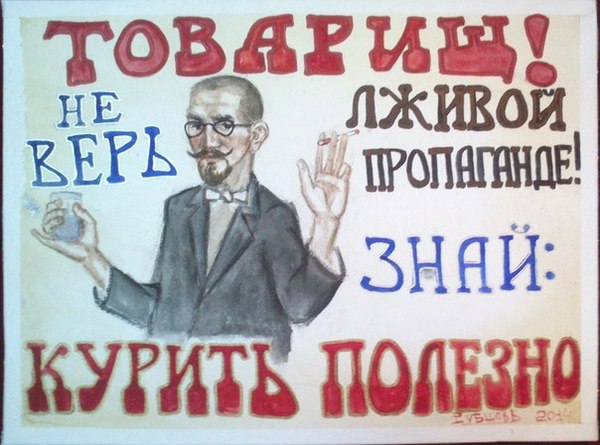 ТОВАРИЩ!
НЕ ВЕРЬ
ЛЖИВОЙ
ПРОПАГАНДЕ!
ЗНАЙ:
КУРИТЬ ПОЛЕЗНО
РУБЦОВЪ 2014